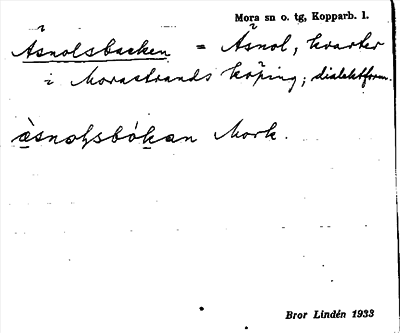 Mora sn o. tg, Kopparb. l.
Åsnolsbacken = Åsnol, kvarter
i Morastrands köping; dialektform.
Mork.
Bror Lindén 1933